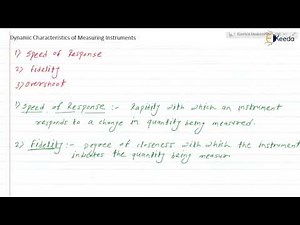 Dynamic Characteristics of Measuring Instruments
Ekeeda
1) Speed of Response
2) Fidelity
3) Overshoot
1) Speed of Response :- Rapidity with which an instrument
responds to a change in quantity being measured.
2) Fidelity :- Degree of closeness with which the instrument
indicates the quantity being measur